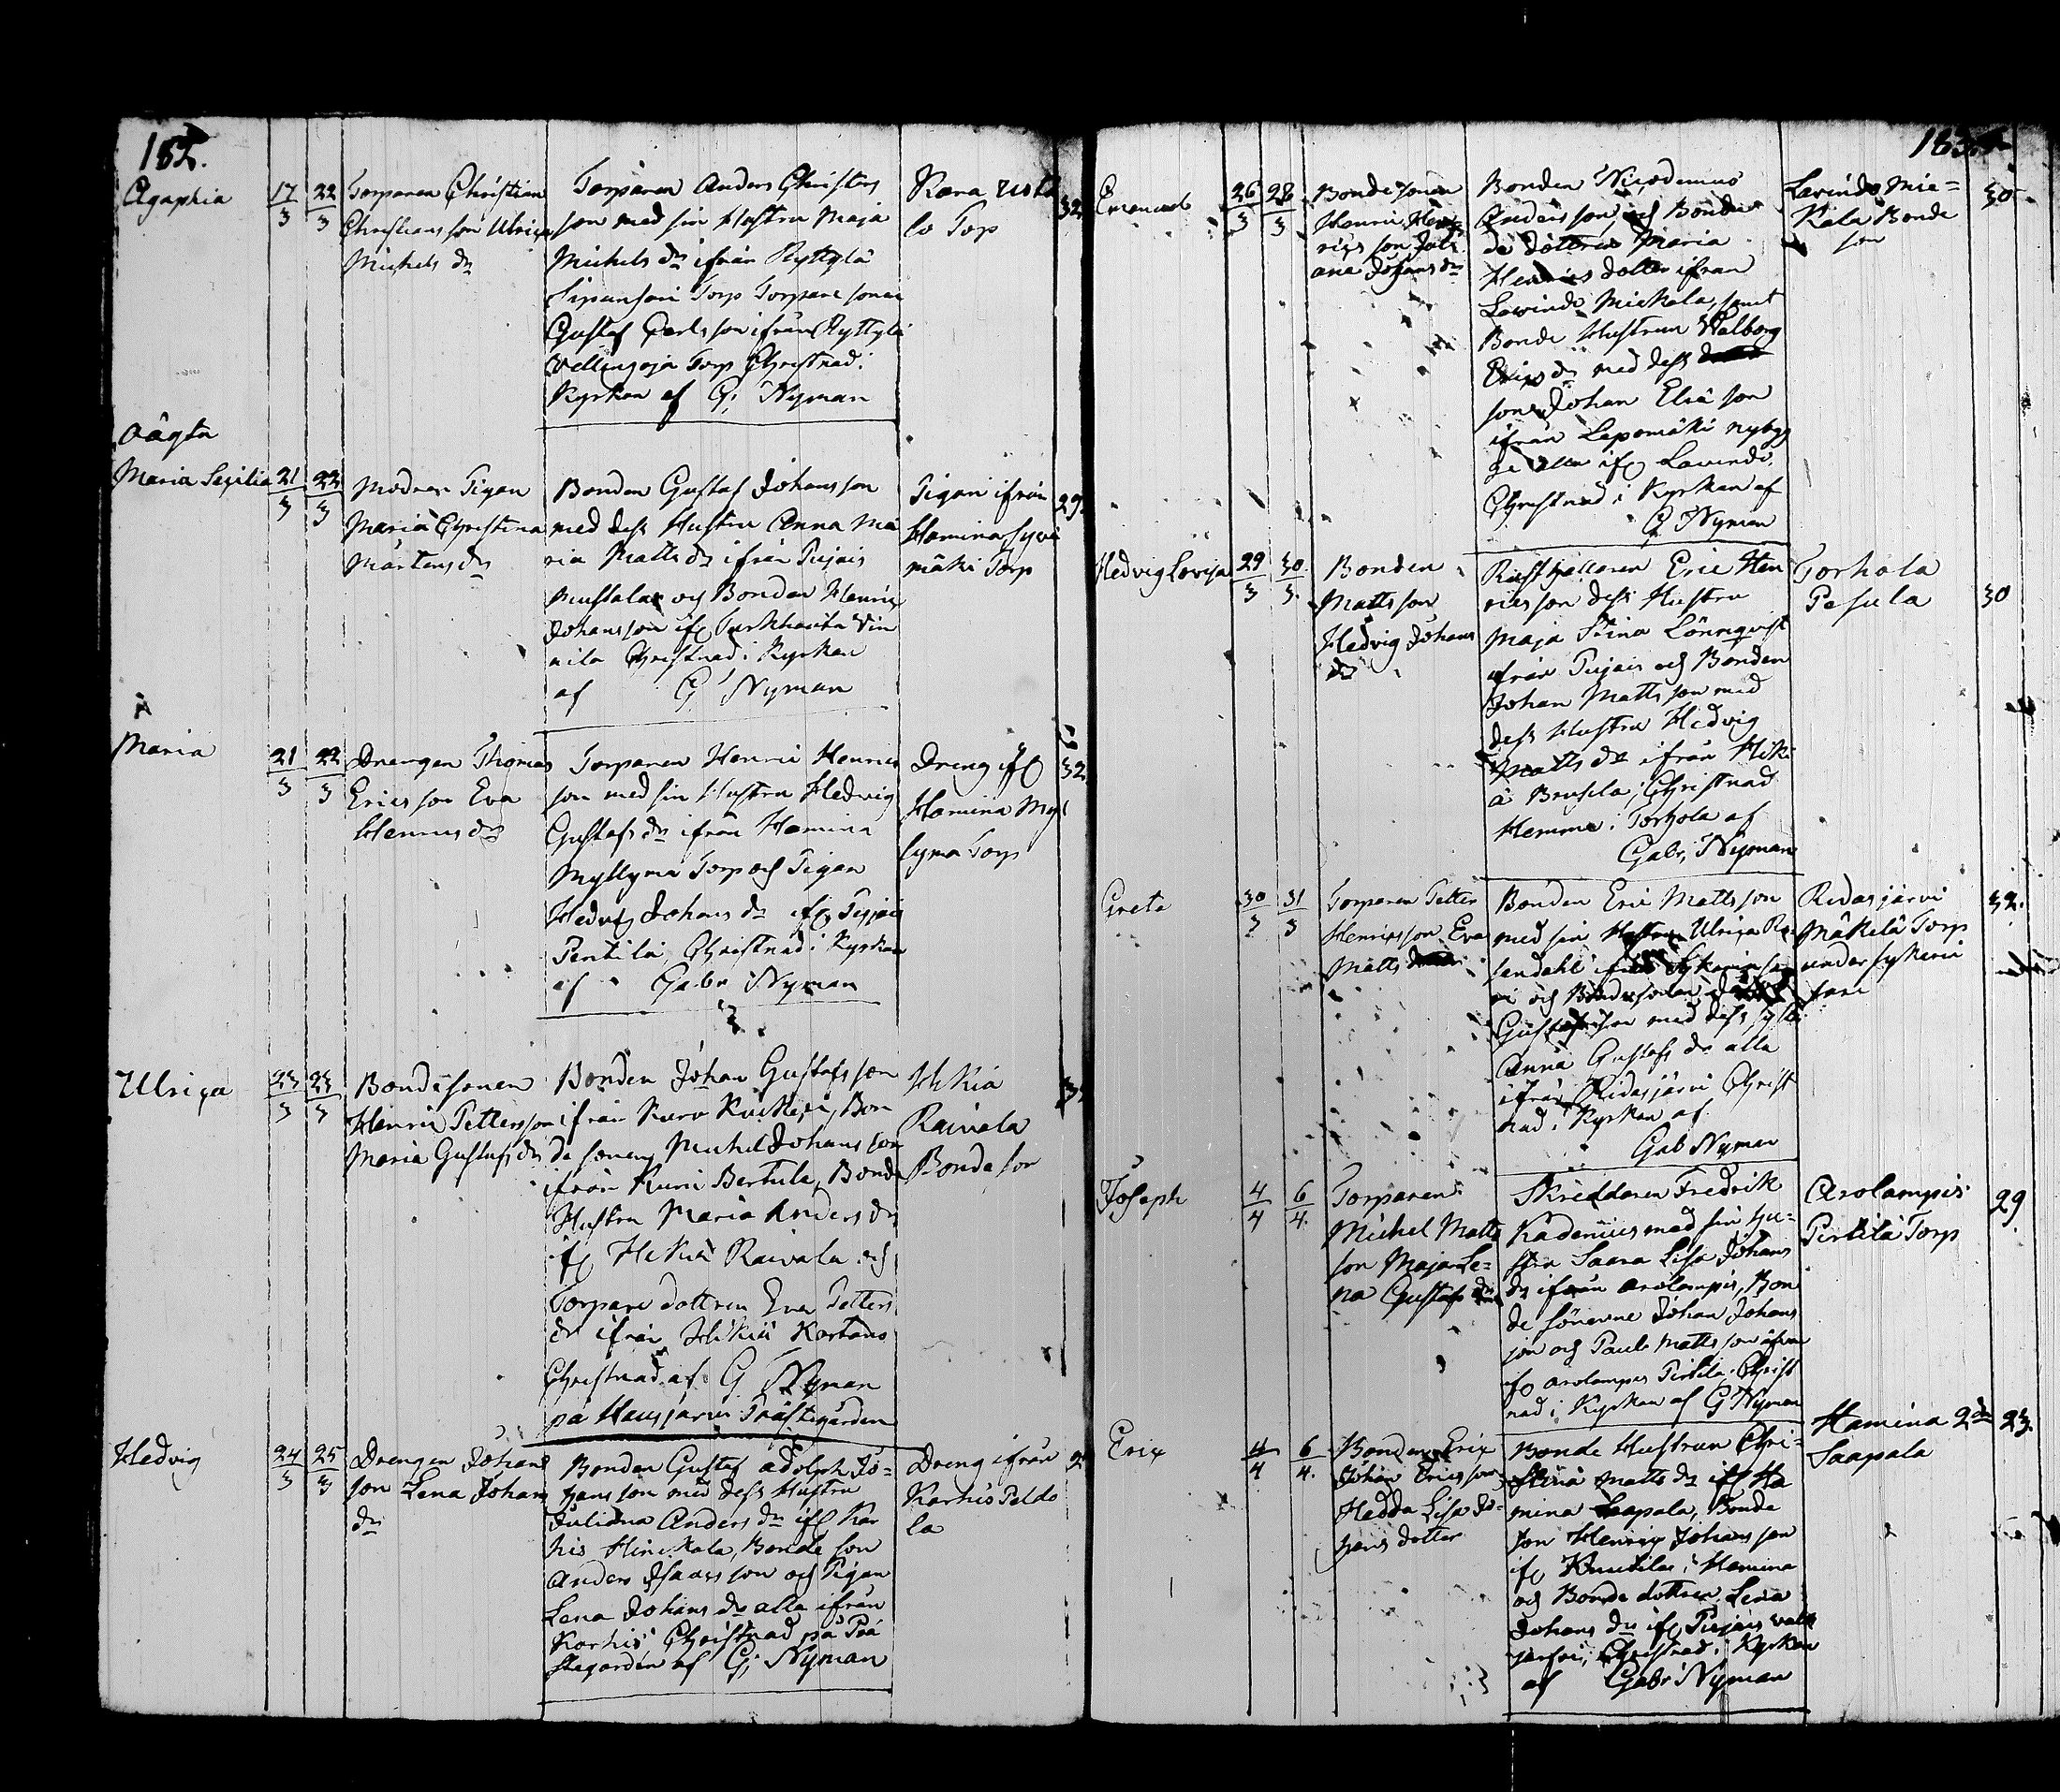 182.
Agaphia 17/3 22/3
Torparen Christian
Christiansson Ulrica
Michels dr
Torparen Anders Christers
son med sin Hustru Maja
Michels dr ifrån Ryttylä
Torp Torpare sonen
Gustaf Carls son ifrån Ryttylä
Torp Christnad i
Kyrkan af G. Nyman
Kara
lo Torp
32
Oägta
Maria Sesilia 21/3 22/3
Modren Pigan
Maria Christina
Mårtens dr
Bonden Gustaf Johansson
med dess Hustru Anna Ma
ria Matts dr ifrån Pujais
Mustala och Bonden Henric
Johansson ifr Turkhauta
nila Christnad i Kyrkan
af G Nyman
Pigan ifrån
Hamina Syvä
mäki Torp
29
Maria 21/3 22/3
Drengen Thomas
Erics son Eva
Henrics dr
Torparen Henric Henrics
son med sin Hustru Hedvig
Gustafs dr ifrån Hamina
Myllymä Torp och Pigan
Hedvig Johans dr ifr
Pentilä, Christnad i Kyrkan
af Gabr Nyman
Dreng ifr
Hamina Myl
lyma Torp
32
Ulrica 23/3 23/3
Bondesonen
Henric Pettersson
Maria Gustafs dr
Bonden Johan Gustafsson
ifrån Kuru, Bon
de sonen Michel Johansson
ifrån Kuru Bertula, Bonde
Hustru Maria Anders dr
ifr Hikiä Raivala och
Torpare dottren Eva Petters
dr ifrån Hikiä Kartano
Christnad af G Nyman
på Hausjärvi Prästegården
Hikiä
Raivala
Bonde son
Hedvig 24/3 25/3
Drengen Johans
son Lena Johans
dr
Bonden Gustaf Adolph Jo-
hansson med dess Hustru
Juliana Anders dr ifr Kar
his Hinckala, Bonde son
Anders Isaacs son och Pigan
Lena Johans dr alla ifrån
Karhis, Christnad på Prä
stegården af G. Nyman
Dreng ifrån
Karhis Peldo
la
183
Emanuel 26/3 28/3
Bondesonen
Henric Hen
rics son Juli
ana Johans dr
Bonden Nicodemus
Anders son och Bon
de döttren Maria
Henrics dotter ifrån
Lavinde Miekala, samt
Bonde Hustrun Walborg
Erics dr med dess
son Johan Eliä son
ifrån Lepomäki nybyg
ge alla ifr Lavinde,
Christnad i Kyrkan af
G Nyman
Lavinde Mie-
kala Bonde
son
30
Hedvig Lovisa 29/3 30/3
Bonden
Matts son
Hedvig Johans
dr
Rusthållaren Eric Hen
ricsson dess Hustru
Maja Stina Lönnqvist
ifrån Pujais och Bonden
Johan Mattsson med
dess Hustru Hedvig
Matts dr ifrån Hiki
ä Brusila, Christnad
Hemma i Torhola af
Gabr, Nyman
Torhola
Pesula
30
Greta 30/3 31/3
Torparen Petter
Henricsson Eva
Matts
Bonden Eric Mattsson
med sin Hustru Ulrica Ro
sendahl ifrån
ri och Bondesonen
Gustafsson med dess
Anna Gustafs dr alla
ifrån Ridasjärvi Christ
nad i Kyrkan af
Gab Nyman
Ridasjärvi
Mäkelä Torp
under Sykäri
32.
Joseph 4/4 6/4
Torparen
Michel Matts
son Maja Le-
na Gustafs dr
Skreddaren Fredrik
Kadenius med sin Hu-
stru Saara Lisa Johans
dr ifrån Arolampis, Bon
de sönerne Johan Johans
son och Paul Mattsson
ifr Arolampis Pirtilä. Christ
nad i Kyrkan af G Nyman
Arolampis
Pirtilä Torp
29
Eric 4/4 6/4
Bonden Eric
Johan Ericsson
Hedda Lisa Jo-
hans dotter
Bonde Hustrun Chri-
stina Matts dr ifr Ha
mina Saapala, Bonde
son Henric Johansson
ifr Knuutila i Hamina
och Bonde dottren Lena
Johans dr ifr Pujais
Christnad i Kyrkan
af Gabr Nyman
Hamina
Saapala
23.